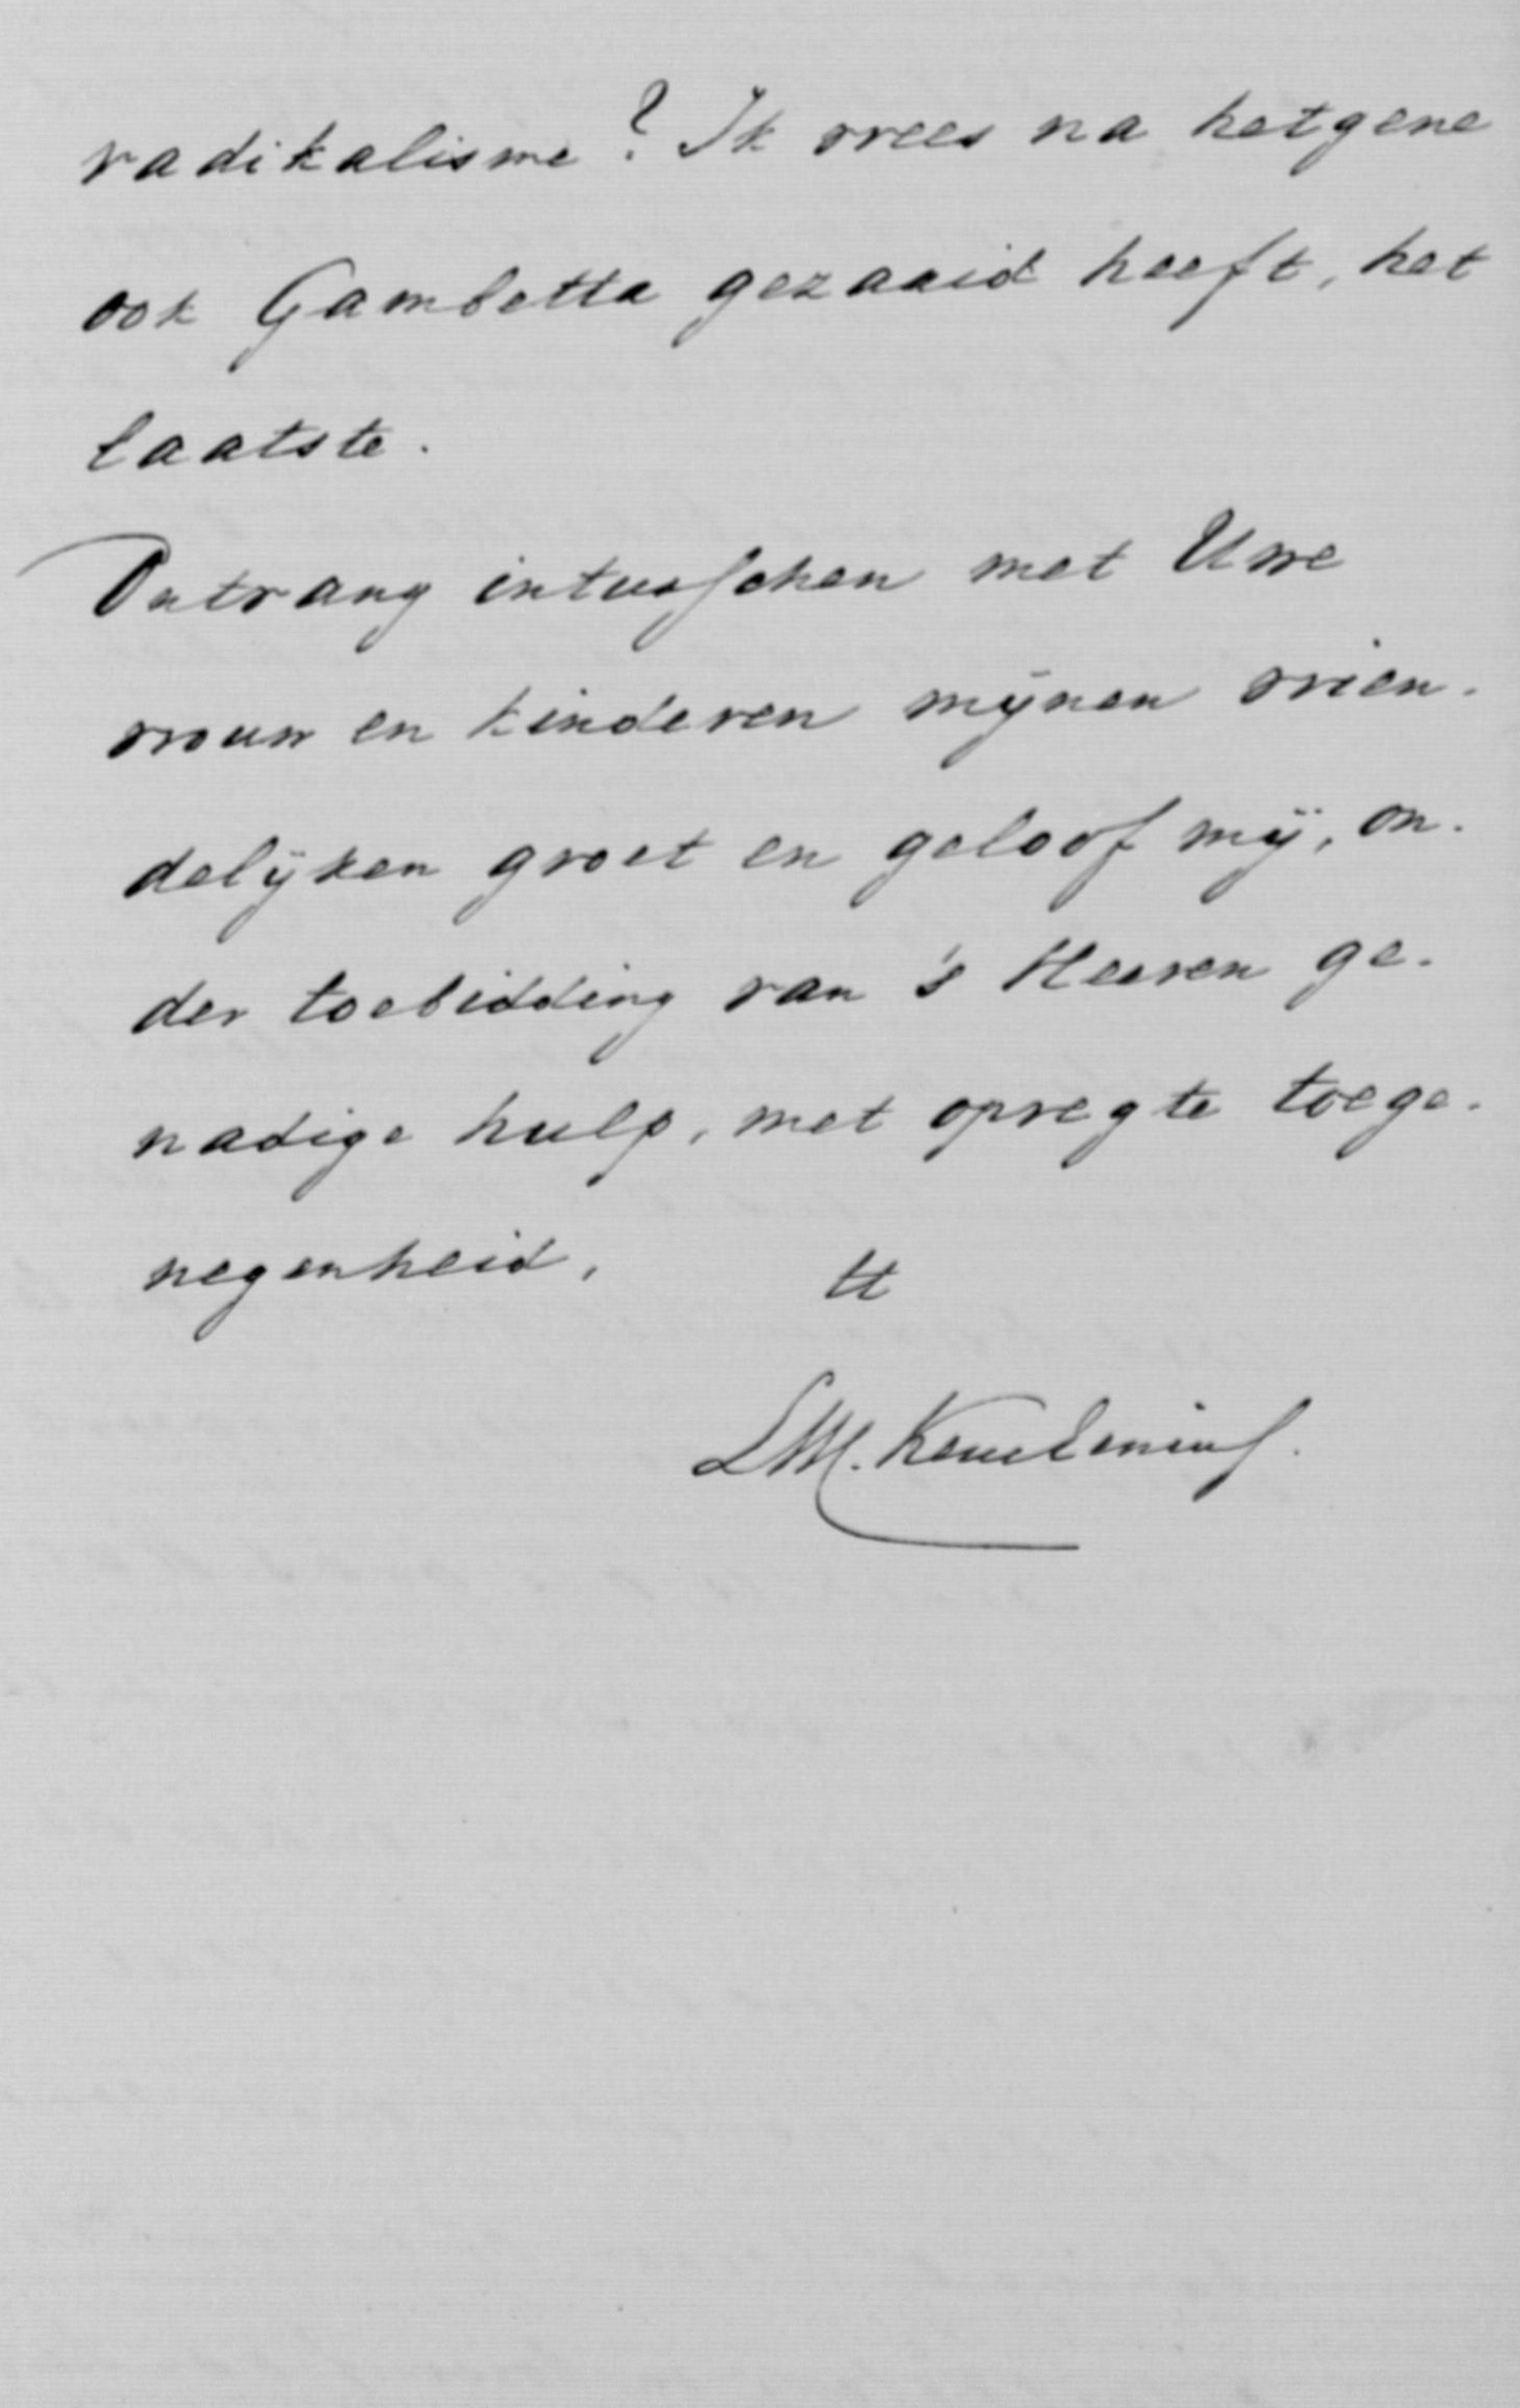 radikalisme? Ik vrees na hetgene
ook Gambetta gezaaid heeft, het
laatste.
Ontvang intusschen met Uwe
vrouw en kinderen mynen vrien-
delÿken groet en geloof mÿ, on-
der toebidding van 's Heeren ge-
nadige hulp, met opregte toege-
negenheid,
tt
LW. Keuchenius.